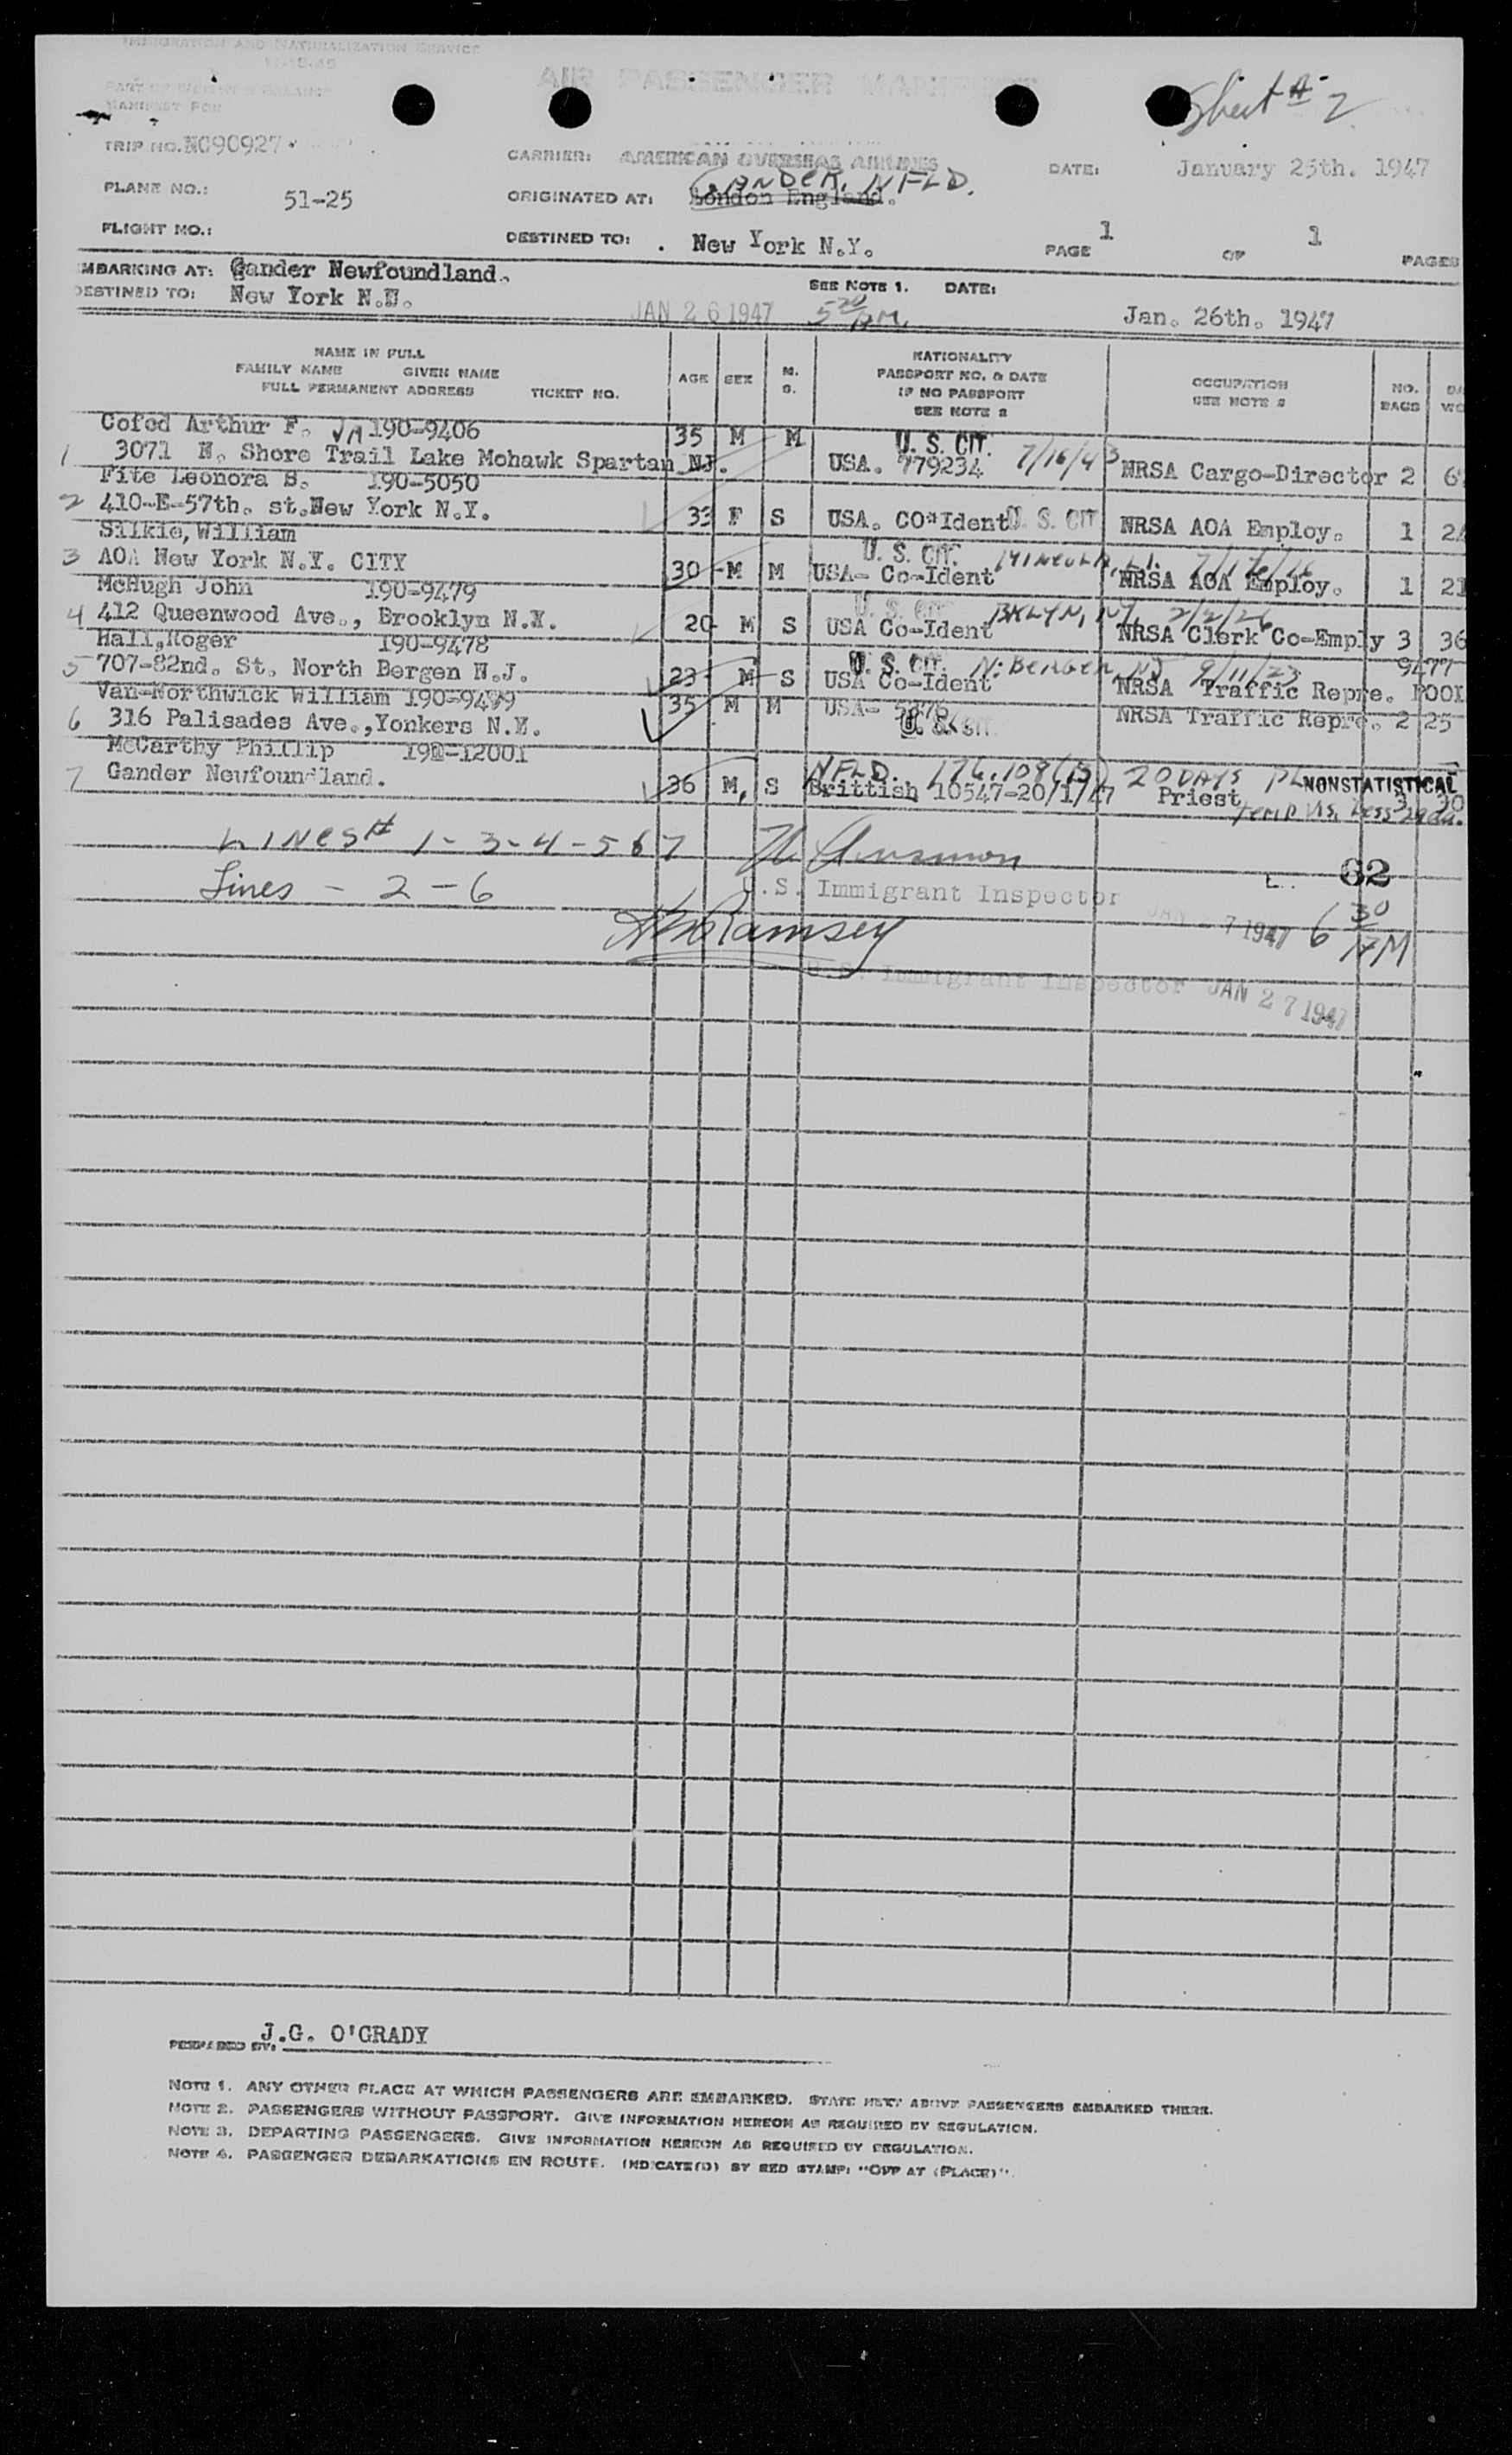 IMMIGRATION AND NATURALIZATION SERVICE
11-15-45
AIR PASSENGER MANIFEST
Sheet # 2
MANIFEST FOR
TRIP NO. NC90927
CARRIER: AMERICAN OVERSEAS AIRLINES
DATE: January 25th. 1947
GANDER, NFLD.
PLANE NO.: 51-25
ORIGINATED AT: London England.
FLIGHT NO.:
DESTINED TO: . New York N.Y.
PAGE 1 OF 1 PAGES
EMBARKING AT: Gander Newfoundland.
SEE NOTE 1. DATE:
DESTINED TO: New York N.Y.
JAN 26 1947 5 20 PM. Jan. 26th. 1947
NAME IN FULL
FAMILY NAME GIVEN NAME
FULL PERMANENT ADDRESS TICKET NO.
AGE SEX M. S.
NATIONALITY
PASSPORT NO. & DATE
IF NO PASSPORT
SEE NOTE 2
OCCUPATION
SEE NOTE 2
NO. BAGS
Cofod Arthur F. 190-9406 35 M M U. S. CIT.
1 3071 N. Shore Trail Lake Mohawk Spartan NJ. USA. 779234 7/16/43 NRSA Cargo-Director 2
Fite Leonora S. 190-5050
2 410-E-57th. st.New York N.Y. 33 F S USA. CO*Ident U. S. CIT NRSA AOA Employ. 1
Silkie,William
3 AOA New York N.Y. CITY 30 M M U. S. CIT. USA- Co-Ident MINEOLA, L.I. NRSA AOA Employ. 1 21
McHugh John 190-9479
4 412 Queenwood Ave., Brooklyn N.Y. 20 M S U. S. CIT. USA Co-Ident BKLYN, NY 2/2/26 NRSA Clerk Co-Emply 3 36
Hall,Roger 190-9478 9477
5 707-82nd. St. North Bergen N.J. 23 M S U. S. CIT. USA Co-Ident N. BERGEN, NJ 9/11/23 NRSA Traffic Repre. POOL
Van-Northwick William 190-9499 35 M M USA- 5376 NRSA Traffic Repre. 2 25
6 316 Palisades Ave.,Yonkers N.Y. U. S. CIT.
McCarthy Phillip 190-12001
NFLD. 176.108(15) 20 DAYS NONSTATISTICAL
7 Gander Newfoundland. 36 M, S Brittish 10547-20/1/47 Priest 3 30
LINES # 1-3-4-5 & 7
U.S. Immigrant Inspector
62
Lines - 2 - 6
JAN 27 1947 6 30
Ramsey
U.S. Immigrant Inspector JAN 27 1947
PREPARED BY: J.G. O'GRADY
NOTE 1. ANY OTHER PLACE AT WHICH PASSENGERS ARE EMBARKED. STATE NEXT ABOVE PASSENGERS EMBARKED THERE.
NOTE 2. PASSENGERS WITHOUT PASSPORT. GIVE INFORMATION HEREON AS REQUIRED BY REGULATION.
NOTE 3. DEPARTING PASSENGERS. GIVE INFORMATION HEREON AS REQUIRED BY REGULATION.
NOTE 4. PASSENGER DEBARKATIONS EN ROUTE. INDICATE(D) BY RED STAMP: "OFF AT (PLACE)".